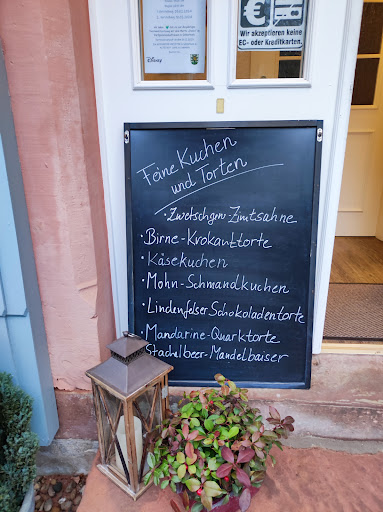 Disney
Wir akzeptieren keine
EC- oder Kreditkarten.
Feine Kuchen
und Torten
• Zwetschgen-Zimtsahne
• Birne-Krokanttorte
• Käsekuchen
• Mohn-Schmandkuchen
• Lindenfelser Schokoladentorte
• Mandarine-Quarktorte
Stachelbeer-Mandelbaiser